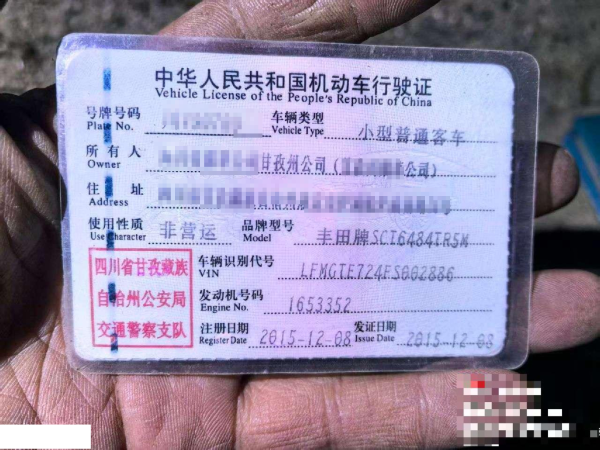 中华人民共和国机动车行驶证
Vehicle License of the People's Republic of China
号牌号码 Plate No. 车辆类型 Vehicle Type 小型普通客车
所有人 Owner 甘孜州公司( 公司)
住址 Address
使用性质 Use Character 非营运 品牌型号 Model 丰田牌SCT6484TR5M
四川省甘孜藏族
自治州公安局
交通警察支队
车辆识别代号 VIN LFMGTE724FS002886
发动机号码 Engine No. 1653352
注册日期 Register Date 2015-12-08 发证日期 Issue Date 2015-12-08